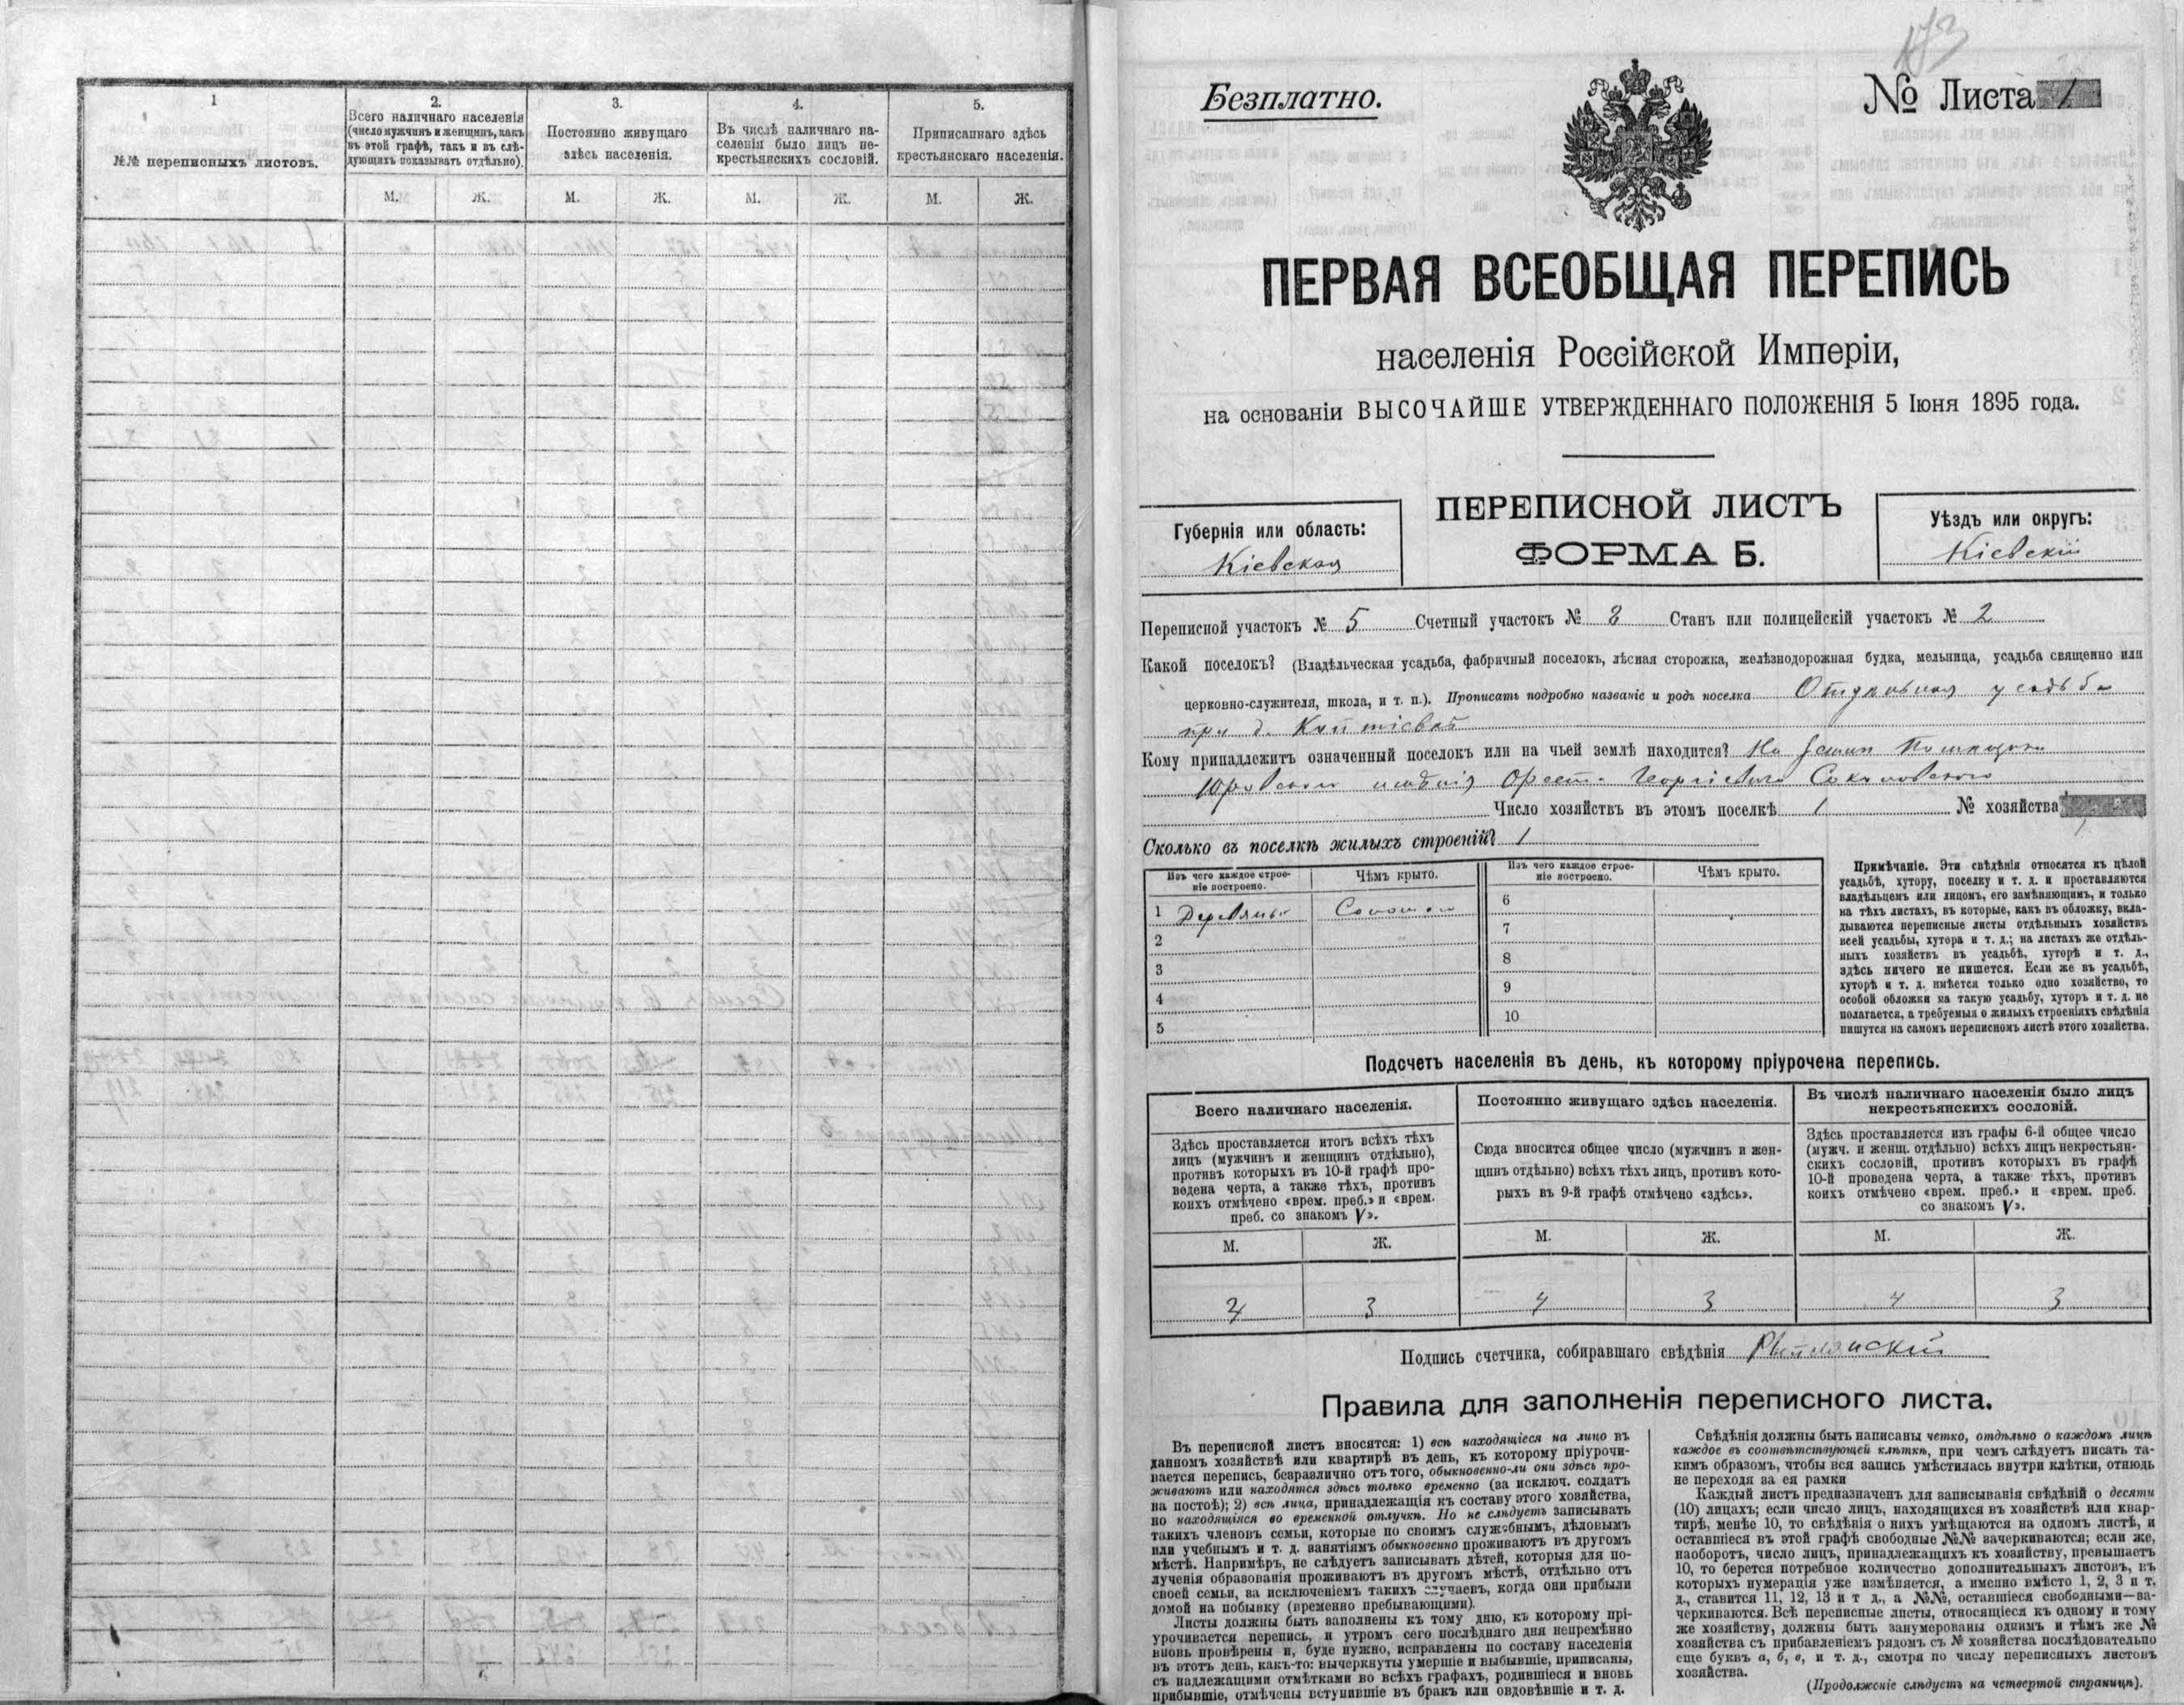 1
№№ переписныхъ листовъ.
2.
Всего наличнаго населенія
(число мужчинъ и женщинъ, какъ
въ этой графѣ, такъ и въ слѣ-
дующихъ показывать отдѣльно).
3.
Постоянно живущаго
здѣсь населенія.
4.
Въ числѣ наличнаго на-
селенія было лицъ не-
крестьянскихъ сословій.
5.
Приписаннаго здѣсь
крестьянскаго населенія.
М. Ж. М. Ж. М. Ж. М. Ж.
173
Безплатно.
№ Листа 1
ПЕРВАЯ ВСЕОБЩАЯ ПЕРЕПИСЬ
населенія Россійской Имперіи,
на основаніи ВЫСОЧАЙШЕ УТВЕРЖДЕННАГО ПОЛОЖЕНІЯ 5 Іюня 1895 года.
Губернія или область:
Кіевская
ПЕРЕПИСНОЙ ЛИСТЪ
ФОРМА Б.
Уѣздъ или округъ:
Кіевскій
Переписной участокъ № 5 Счетный участокъ № 8 Станъ или полицейскій участокъ № 2
Какой поселокъ? (Владѣльческая усадьба, фабричный поселокъ, лѣсная сторожка, желѣзнодорожная будка, мельница, усадьба священно или
церковно-служителя, школа, и т. п.). Прописать подробно названіе и родъ поселка Отдѣльная усадьба
при д.
Кому принадлежитъ означенный поселокъ или на чьей землѣ находится? На земли
имѣнія Ореста Георгіевича Соколовского
Число хозяйствъ въ этомъ поселкѣ 1 № хозяйства 1
Сколько въ поселкѣ жилыхъ строеній? 1
Изъ чего каждое строе-
ніе построено.
Чѣмъ крыто.
Изъ чего каждое строе-
ніе построено.
Чѣмъ крыто.
1 Деревянно Соломою 6
2 7
3 8
4 9
5 10
Примѣчаніе. Эти свѣдѣнія относятся къ цѣлой
усадьбѣ, хутору, поселку и т. д. и проставляются
владѣльцемъ или лицомъ, его замѣняющимъ, и только
на тѣхъ листахъ, въ которые, какъ въ обложку, вкла-
дываются переписные листы отдѣльныхъ хозяйствъ
всей усадьбы, хутора и т. д.; на листахъ же отдѣль-
ныхъ хозяйствъ въ усадьбѣ, хуторѣ и т. д.,
здѣсь ничего не пишется. Если же въ усадьбѣ,
хуторѣ и т. д. имѣется только одно хозяйство, то
особой обложки на такую усадьбу, хуторъ и т. д. не
полагается, а требуемыя о жилыхъ строеніяхъ свѣдѣнія
пишутся на самомъ переписномъ листѣ этого хозяйства.
Подсчетъ населенія въ день, къ которому пріурочена перепись.
Всего наличнаго населенія.
Здѣсь проставляется итогъ всѣхъ тѣхъ
лицъ (мужчинъ и женщинъ отдѣльно),
противъ которыхъ въ 10-й графѣ про-
ведена черта, а также тѣхъ, противъ
коихъ отмѣчено «врем. преб.» и «врем.
преб. со знакомъ V».
Постоянно живущаго здѣсь населенія.
Сюда вносится общее число (мужчинъ и жен-
щинъ отдѣльно) всѣхъ тѣхъ лицъ, противъ кото-
рыхъ въ 9-й графѣ отмѣчено «здѣсь».
Въ числѣ наличнаго населенія было лицъ
некрестьянскихъ сословій.
Здѣсь проставляется изъ графы 6-й общее число
(мужч. и женщ. отдѣльно) всѣхъ лицъ некрестьян-
скихъ сословій, противъ которыхъ въ графѣ
10-й проведена черта, а также тѣхъ, противъ
коихъ отмѣчено «врем. преб.» и «врем. преб.
со знакомъ V».
М. Ж. М. Ж. М. Ж.
4 3 4 3 4 3
Подпись счетчика, собиравшаго свѣдѣнія
Правила для заполненія переписного листа.
Въ переписной листъ вносятся: 1) всѣ находящіеся на лицо въ
данномъ хозяйствѣ или квартирѣ въ день, къ которому пріурочи-
вается перепись, безразлично отъ того, обыкновенно-ли они здѣсь про-
живаютъ или находятся здѣсь только временно (за исключ. солдатъ
на постоѣ); 2) всѣ лица, принадлежащія къ составу этого хозяйства,
но находящіяся во временной отлучкѣ. Но не слѣдуетъ записывать
такихъ членовъ семьи, которые по своимъ служебнымъ, дѣловымъ
или учебнымъ и т. д. занятіямъ обыкновенно проживаютъ въ другомъ
мѣстѣ. Напримѣръ, не слѣдуетъ записывать дѣтей, которыя для по-
лученія образованія проживаютъ въ другомъ мѣстѣ, отдѣльно отъ
своей семьи, за исключеніемъ такихъ случаевъ, когда они прибыли
домой на побывку (временно пребывающими).
Листы должны быть заполнены къ тому дню, къ которому прі-
урочивается перепись, и утромъ сего послѣдняго дня непремѣнно
вновь провѣрены и, буде нужно, исправлены по составу населенія
въ этотъ день, какъ-то: вычеркнуты умершіе и выбывшіе, приписаны,
съ надлежащими отмѣтками во всѣхъ графахъ, родившіеся и вновь
прибывшіе, отмѣчены вступившіе въ бракъ или овдовѣвшіе и т. д.
Свѣдѣнія должны быть написаны четко, отдѣльно о каждомъ лицѣ
каждое въ соотвѣтствующей клѣткѣ, при чемъ слѣдуетъ писать та-
кимъ образомъ, чтобы вся запись умѣстилась внутри клѣтки, отнюдь
не переходя за ея рамки
Каждый листъ предназначенъ для записыванія свѣдѣній о десяти
(10) лицахъ; если число лицъ, находящихся въ хозяйствѣ или квар-
тирѣ, менѣе 10, то свѣдѣнія о нихъ умѣщаются на одномъ листѣ, и
оставшіеся въ этой графѣ свободные №№ зачеркиваются; если же,
наоборотъ, число лицъ, принадлежащихъ къ хозяйству, превышаетъ
10, то берется потребное количество дополнительныхъ листовъ, въ
которыхъ нумерація уже измѣняется, а именно вмѣсто 1, 2, 3 и т.
д., ставится 11, 12, 13 и т д., а №№, оставшіеся свободными—за-
черкиваются. Всѣ переписные листы, относящіеся къ одному и тому
же хозяйству, должны быть занумерованы однимъ и тѣмъ же №
хозяйства съ прибавленіемъ рядомъ съ № хозяйства послѣдовательно
еще буквъ а, б, в, и т. д., смотря по числу переписныхъ листовъ
хозяйства.
(Продолженіе слѣдуетъ на четвертой страницѣ).